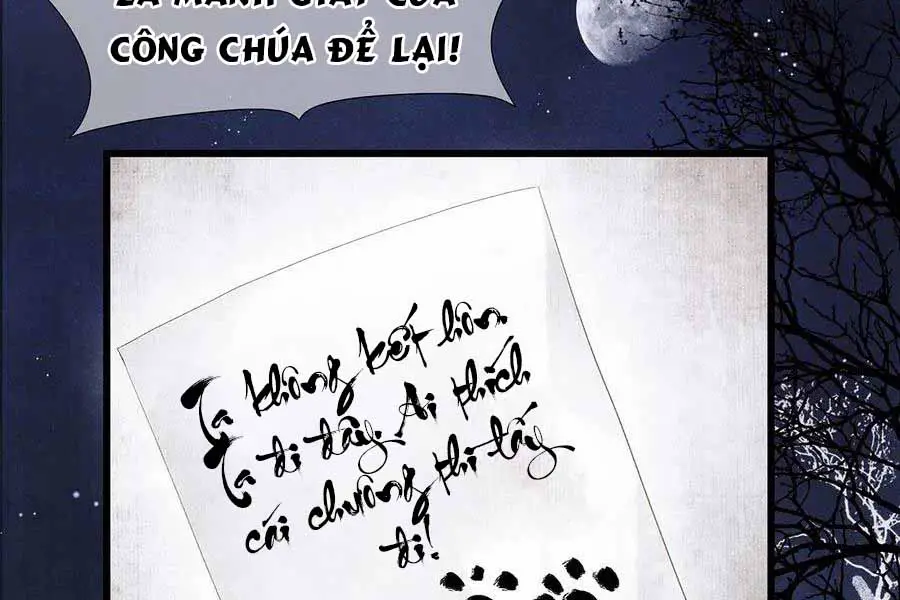 LÀ MẢNH GIẤY CỦA
CÔNG CHÚA ĐỂ LẠI!
Ta không kết hôn.
Ta đi đây. Ai thích
cái chuông thì lấy
đi!